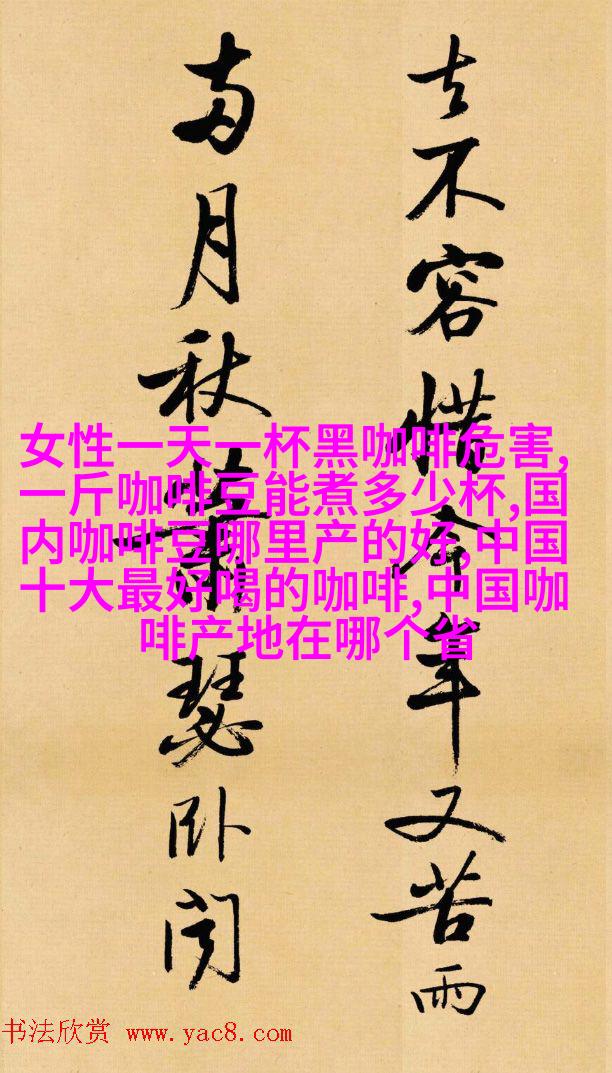 去不容惜今年又苦雨
两月秋蕭瑟卧闻
女性一天一杯黑咖啡危害,
一斤咖啡豆能煮多少杯,国
内咖啡豆哪里产的好,中国
十大最好喝的咖啡,中国咖
啡产地在哪个省
书法欣赏 www.yac8.com